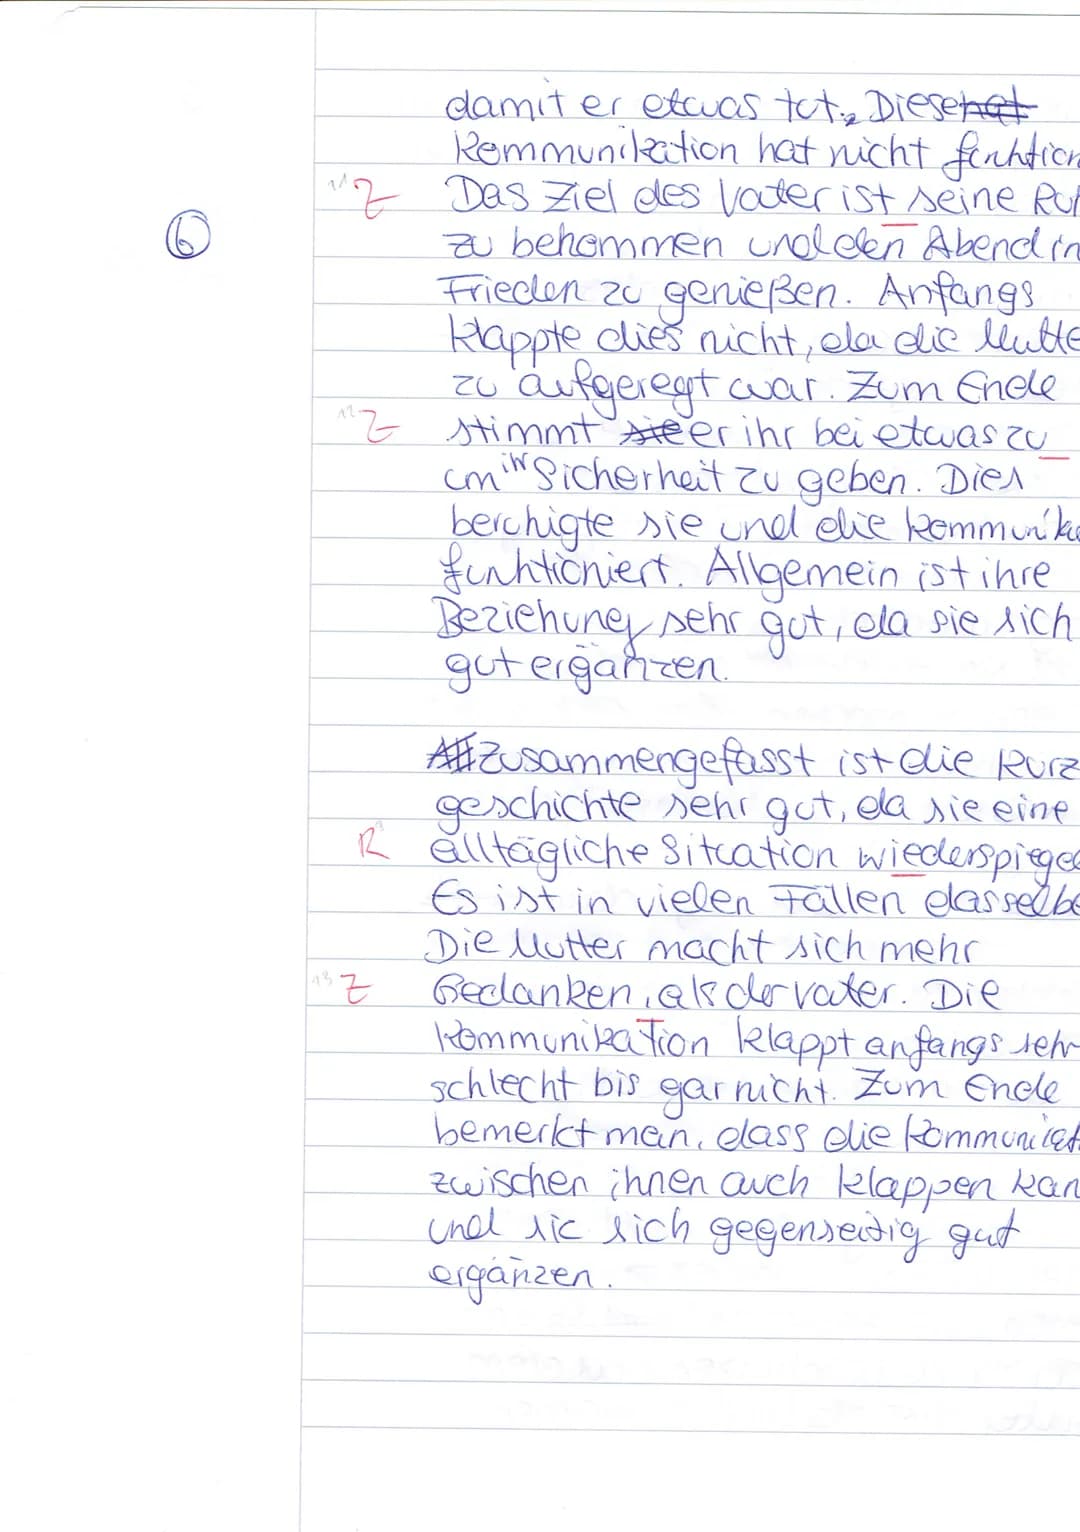 damit er etwas tut. Diese hat
Kommunikation hat nicht funktion
11 Z Das Ziel des Vater ist seine Ruh
6 zu bekommen und den Abend in
Frieden zu genießen. Anfangs
klappte dies nicht, da die Mutte
zu aufgeregt war. Zum Ende
12 Z stimmt sie er ihr bei etwas zu
um ihr Sicherheit zu geben. Dies
beruhigte sie und die Kommunika
funktioniert. Allgemein ist ihre
Beziehung sehr gut, da sie sich
gut ergänzen.
All Zusammengefasst ist die Kurz
geschichte sehr gut, da sie eine
R alltägliche Situation wiederspiegel
Es ist in vielen Fällen dasselbe
Die Mutter macht sich mehr
13 Z Gedanken, als der Vater. Die
Kommunikation klappt anfangs sehr
schlecht bis gar nicht. Zum Ende
bemerkt man, dass die Kommunikat
zwischen ihnen auch klappen kan
und sie sich gegenseitig gut
ergänzen.